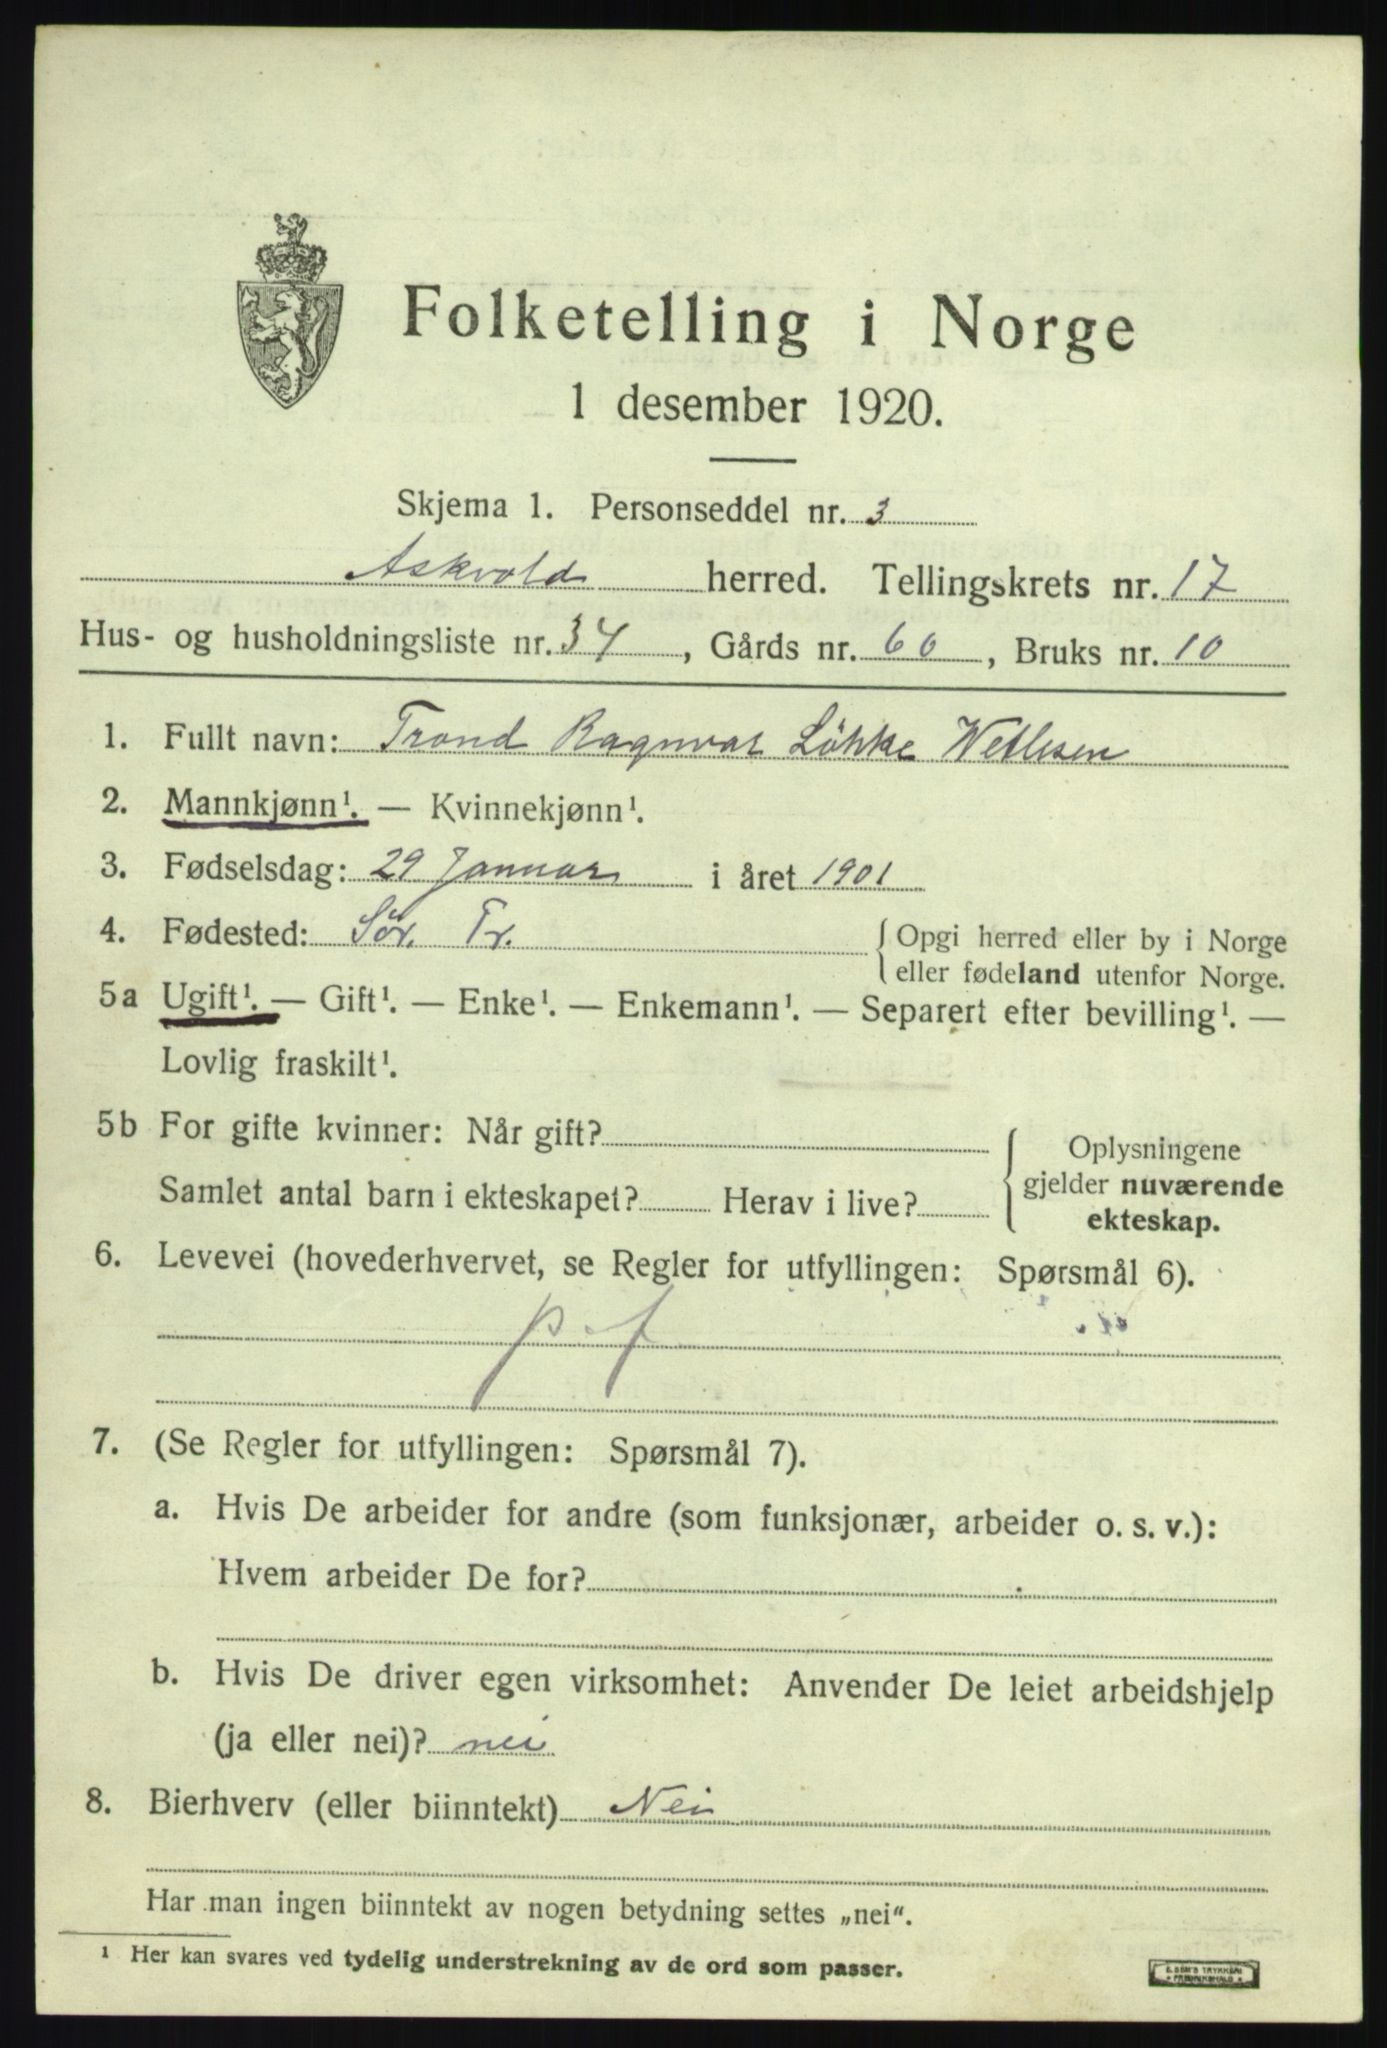 Folketelling i Norge
1 desember 1920.
Skjema 1. Personseddel nr. 3
Askvold herred. Tellingskrets nr. 17
Hus- og husholdningsliste nr. 34, Gårds nr. 60, Bruks nr. 10
1. Fullt navn: Trond Ragnvar Löhke Wetlesen
2. Mannkjønn¹. — Kvinnekjønn¹.
3. Fødselsdag: 29 Januar i året 1901
4. Fødested: Sör. Tr. { Opgi herred eller by i Norge
eller fødeland utenfor Norge.
5a Ugift¹. — Gift¹. — Enke¹. — Enkemann¹. — Separert efter bevilling¹. —
Lovlig fraskilt¹.
5b For gifte kvinner: Når gift?
Samlet antal barn i ekteskapet? Herav i live?
{ Oplysningene
gjelder nuværende
ekteskap.
6. Levevei (hovederhvervet, se Regler for utfyllingen: Spørsmål 6).
p. f
7. (Se Regler for utfyllingen: Spørsmål 7).
a. Hvis De arbeider for andre (som funksjonær, arbeider o. s. v.):
Hvem arbeider De for?
b. Hvis De driver egen virksomhet: Anvender De leiet arbeidshjelp
(ja eller nei)? nei
8. Bierhverv (eller biinntekt) Nei
Har man ingen biinntekt av nogen betydning settes „nei“.
¹ Her kan svares ved tydelig understrekning av de ord som passer.